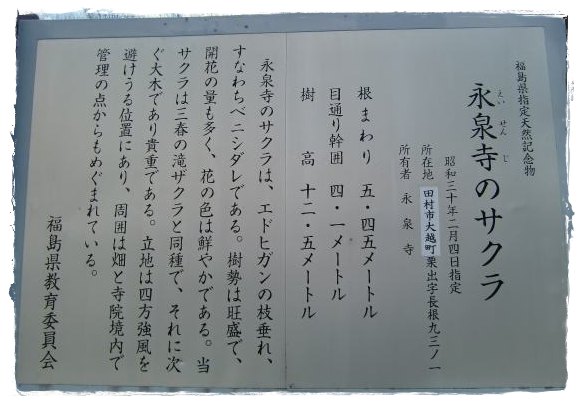 福島県指定天然記念物
えいせんじ
永泉寺のサクラ
昭和三十年二月四日指定
所在地 田村市大越町栗出字長根九三ノ一
所有者 永泉寺
根まわり 五・四五メートル
目通り幹囲 四・一メートル
樹高 十二・五メートル
永泉寺のサクラは、エドヒガンの枝垂れ、
すなわちベニシダレである。樹勢は旺盛で、
開花の量も多く、花の色は鮮やかである。当
サクラは三春の滝ザクラと同種で、それに次
ぐ大木であり貴重である。立地は四方強風を
避けうる位置にあり、周囲は畑と寺院境内で
管理の点からもめぐまれている。
福島県教育委員会